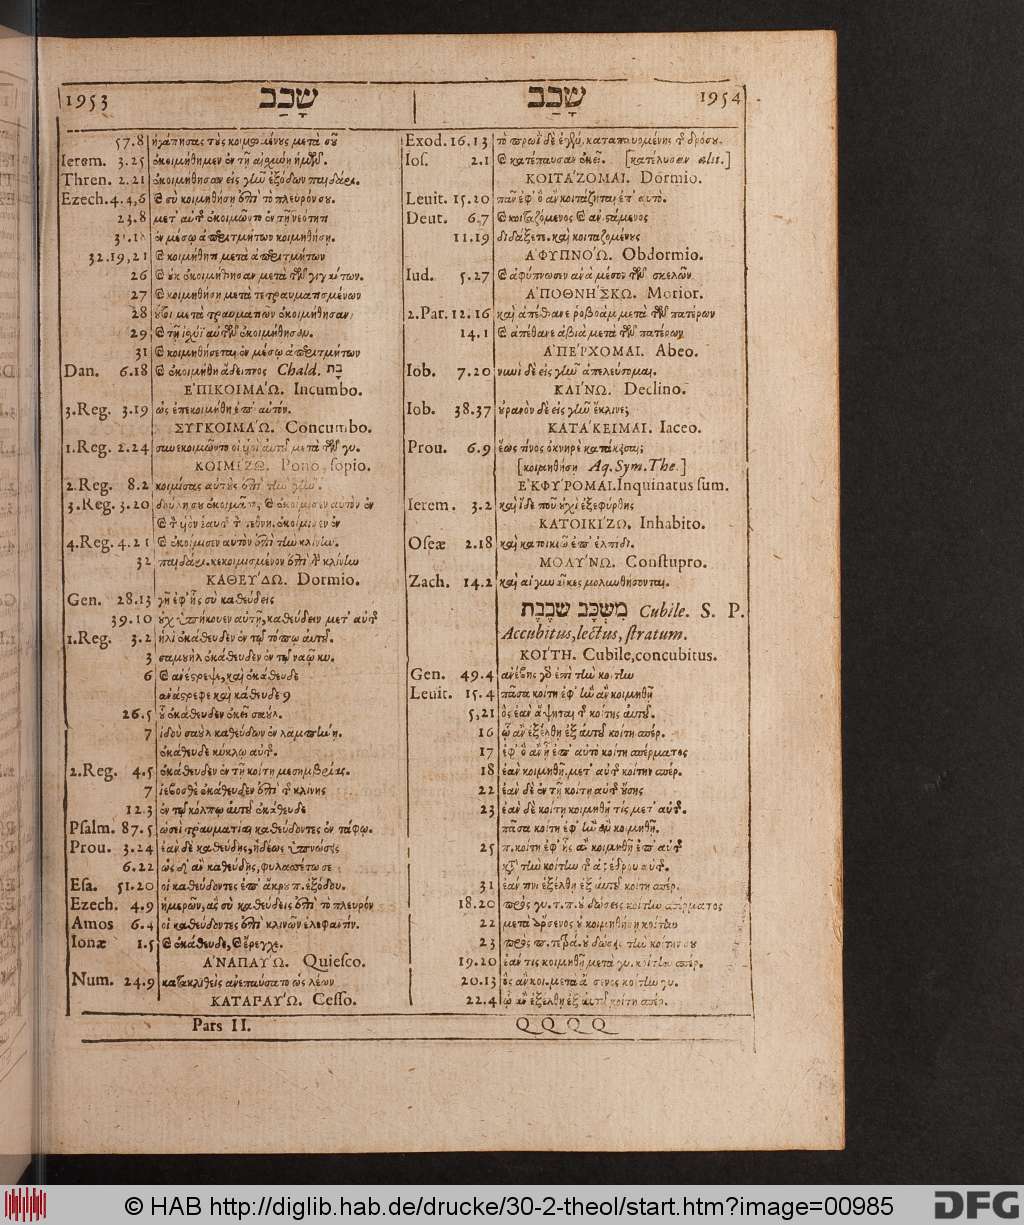 1953 שָׁכַב
57.8 ἠγάπησας τοὺς κοιμωμένους μετὰ σοῦ
Ierem. 3.25 ἐκοιμήθημεν ἐν τῇ αἰσχύνῃ ἡμῶν.
Thren. 2.21 ἐκοιμήθησαν εἰς γῆν ἐξόδων παιδάρι.
Ezech. 4.4,6 καὶ σὺ κοιμηθήσῃ ἐπὶ τὸ πλευρόν σου.
23.8 μετ' αὐτῆς ἐκοιμῶντο ἐν τῇ νεότητι
ἐν μέσῳ ἀπεριτμήτων κοιμηθήσῃ.
32.19,21 καὶ κοιμήθητι μετὰ ἀπεριτμήτων
26 καὶ οὐκ ἐκοιμήθησαν μετὰ τῶν γιγάντων.
27 καὶ κοιμηθήσῃ μετὰ τετραυματισμένων
28 οὗτοι μετὰ τραυματιῶν ἐκοιμήθησαν
29 καὶ τῇ ἰσχύϊ αὐτῶν ἐκοιμήθησαν.
31 καὶ κοιμηθήσεται ἐν μέσῳ ἀπεριτμήτων
Dan. 6.18 καὶ ἐκοιμήθη ἄδειπνος Chald. בָּת
ἘΠΙΚΟΙΜΆΩ. Incumbo.
3.Reg. 3.19 ὡς ἐπεκοιμήθη ἐπ' αὐτόν.
ΣΥΓΚΟΙΜΆΩ. Concumbo.
1.Reg. 2.24 συνεκοιμῶντο οἱ υἱοὶ αὐτοῦ μετὰ τῶν γυ.
ΚΟΙΜΊΖΩ. Pono, sopio.
2.Reg. 8.2 κοιμίσας αὐτοὺς ἐπὶ τὴν γῆν.
3.Reg. 3.20 δούλη σου ἐκοιμᾶτο, καὶ ἐκοίμισεν αὐτὸν ἐν
καὶ τὸν υἱὸν ἑαυτῆς τ τεθνη. ἐκοίμισεν ἐν
4.Reg. 4.21 καὶ ἐκοίμισεν αὐτὸν ἐπὶ τὴν κλίνην.
32 παιδάρι. κεκοιμισμένον ἐπὶ τὴν κλίνην
ΚΑΘΕΎΔΩ. Dormio.
Gen. 28.13 γῆ ἐφ' ἧς σὺ καθεύδεις
39.10 οὐχ ὑπήκουεν αὐτῇ, καθεύδειν μετ' αὐτῆς
1.Reg. 3.2 ἡλὶ ἐκάθευδεν ἐν τῷ τόπῳ αὐτοῦ.
3 σαμουὴλ ἐκάθευδεν ἐν τῷ ναῷ κυ.
6 καὶ ἀνέστρεψε, καὶ ἐκάθευδε
ἀνάστρεφε καὶ κάθευδε 9
26.5 οὗ ἐκάθευδεν ἐκεῖ σαούλ.
7 ἰδοὺ σαοὺλ καθεύδων ἐν λαμπήνῃ.
ἐκάθευδε κύκλῳ αὐτοῦ.
2.Reg. 4.5 ἐκάθευδεν ἐν τῇ κοίτῃ μεσημβρίας.
7 ἰεβοσθὲ ἐκάθευδεν ἐπὶ τῆς κλίνης
12.3 ἐν τῷ κόλπῳ αὐτοῦ ἐκάθευδε
Psalm. 87.5 ὡσεὶ τραυματίαι καθεύδοντες ἐν τάφῳ.
Prou. 3.24 ἐὰν δὲ καθεύδῃς, ἡδέως ὑπνώσεις
6.22 ὡς δ' ἂν καθεύδῃς, φυλασσέτω σε
Esa. 51.20 οἱ καθεύδοντες ἐπ' ἄκρου π. ἐξόδου.
Ezech. 4.9 ἡμερῶν, ἃς σὺ καθεύδεις ἐπὶ τὸ πλευρόν
Amos 6.4 οἱ καθεύδοντες ἐπὶ κλινῶν ἐλεφαντίν.
Ionæ 1.5 καὶ ἐκάθευδε, καὶ ἔρεγχε.
ἈΝΑΠΑΎΩ. Quiesco.
Num. 24.9 κατακλιθεὶς ἀνεπαύσατο ὡς λέων
ΚΑΤΑΠΑΎΩ. Cesso.
Pars II.
שָׁכַב 1954
Exod. 16.13 τὸ πρωῒ δὲ ἐγένε, καταπαυομένης τῆς δρόσου.
Ios. 2.1 καὶ κατέπαυσαν ἐκεῖ. [κατέλυσαν alii.]
ΚΟΙΤΆΖΟΜΑΙ. Dormio.
Leuit. 15.20 πᾶν ἐφ' ὃ ἂν κοιτάζηται ἐπ' αὐτό.
Deut. 6.7 καὶ κοιταζόμενος καὶ ἀνιστάμενος
11.19 διδάξετε. καὶ κοιταζομένους
ἈΦΥΠΝΌΩ. Obdormio.
Iud. 5.27 καὶ ἀφύπνωσεν ἀνὰ μέσον τῶν σκελῶν
ἈΠΟΘΝΉΣΚΩ. Morior.
2.Par. 12.16 καὶ ἀπέθανε ῥοβοὰμ μετὰ τῶν πατέρων
14.1 καὶ ἀπέθανε ἀβιὰ μετὰ τῶν πατέρων
ἈΠΈΡΧΟΜΑΙ. Abeo.
Iob. 7.20 νυνὶ δὲ εἰς γῆν ἀπελεύσομαι.
ΚΛΊΝΩ. Declino.
Iob. 38.37 οὐρανὸν δὲ εἰς γῆν ἔκλινε;
ΚΑΤΆΚΕΙΜΑΙ. Iaceo.
Prou. 6.9 ἕως τίνος ὀκνηρὲ κατάκεισαι;
[κοιμηθήσῃ Aq. Sym. The.]
ἘΚΦΎΡΟΜΑΙ. Inquinatus sum.
Ierem. 3.2 καὶ ἴδε ποῦ οὐχὶ ἐξεφύρθης
ΚΑΤΟΙΚΊΖΩ. Inhabito.
Oseæ 2.18 καὶ κατοικιῶ ἐπ' ἐλπίδι.
ΜΟΛΎΝΩ. Constupro.
Zach. 14.2 καὶ αἱ γυναῖκες μολυνθήσονται.
מִשְׁכָּב שְׁכֶבֶת Cubile. S. P.
Accubitus, lectus, stratum.
ΚΟΊΤΗ. Cubile, concubitus.
Gen. 49.4 ἀνέβης γὰρ ἐπὶ τὴν κοίτην
Leuit. 15.4 πᾶσα κοίτη ἐφ' ἣν ἂν κοιμηθῇ
5,21 ὃς ἐὰν ἅψηται τῆς κοίτης αὐτοῦ.
16 ᾧ ἂν ἐξέλθῃ ἐξ αὐτοῦ κοίτη σπέρ.
17 ἐφ' ὃ ἂν ᾖ ἐπ' αὐτὸ κοίτη σπέρματος
18 ἐὰν κοιμηθῇ. μετ' αὐτῆς κοίτην σπέρ.
22 ἐὰν δὲ ἐν τῇ κοίτῃ αὐτῆς οὔσης
23 ἐὰν δὲ κοίτῃ κοιμηθῇ τὶς μετ' αὐτῆς.
πᾶσα κοίτη ἐφ' ἣν ἂν κοιμηθῇ.
25 π. κοίτη ἐφ' ἧς ἂν κοιμηθῇ ἐπ' αὐτῆς
κατὰ τὴν κοίτην τῆς ἀφέδρου αὐτῆς.
31 ἐάν τινι ἐξέλθῃ ἐξ αὐτοῦ κοίτη σπέρ.
18.20 πρὸς γυ. τ. π. οὐ δώσεις κοίτην σπέρματος
22 μετὰ ἄρσενος οὐ κοιμηθήσῃ κοίτην
23 πρὸς π. τετρά. οὐ δώσεις τὴν κοίτην σου
19.20 ἐάν τις κοιμηθῇ μετὰ γυ. κοίτην σπέρ.
20.13 ὃς ἂν κοι. μετὰ ἄρσενος κοίτην γυ.
22.4 ᾧ ἂν ἐξέλθῃ ἐξ αὐτοῦ κοίτη σπέρ.
Q Q Q Q
© HAB http://diglib.hab.de/drucke/30-2-theol/start.htm?image=00985
DFG